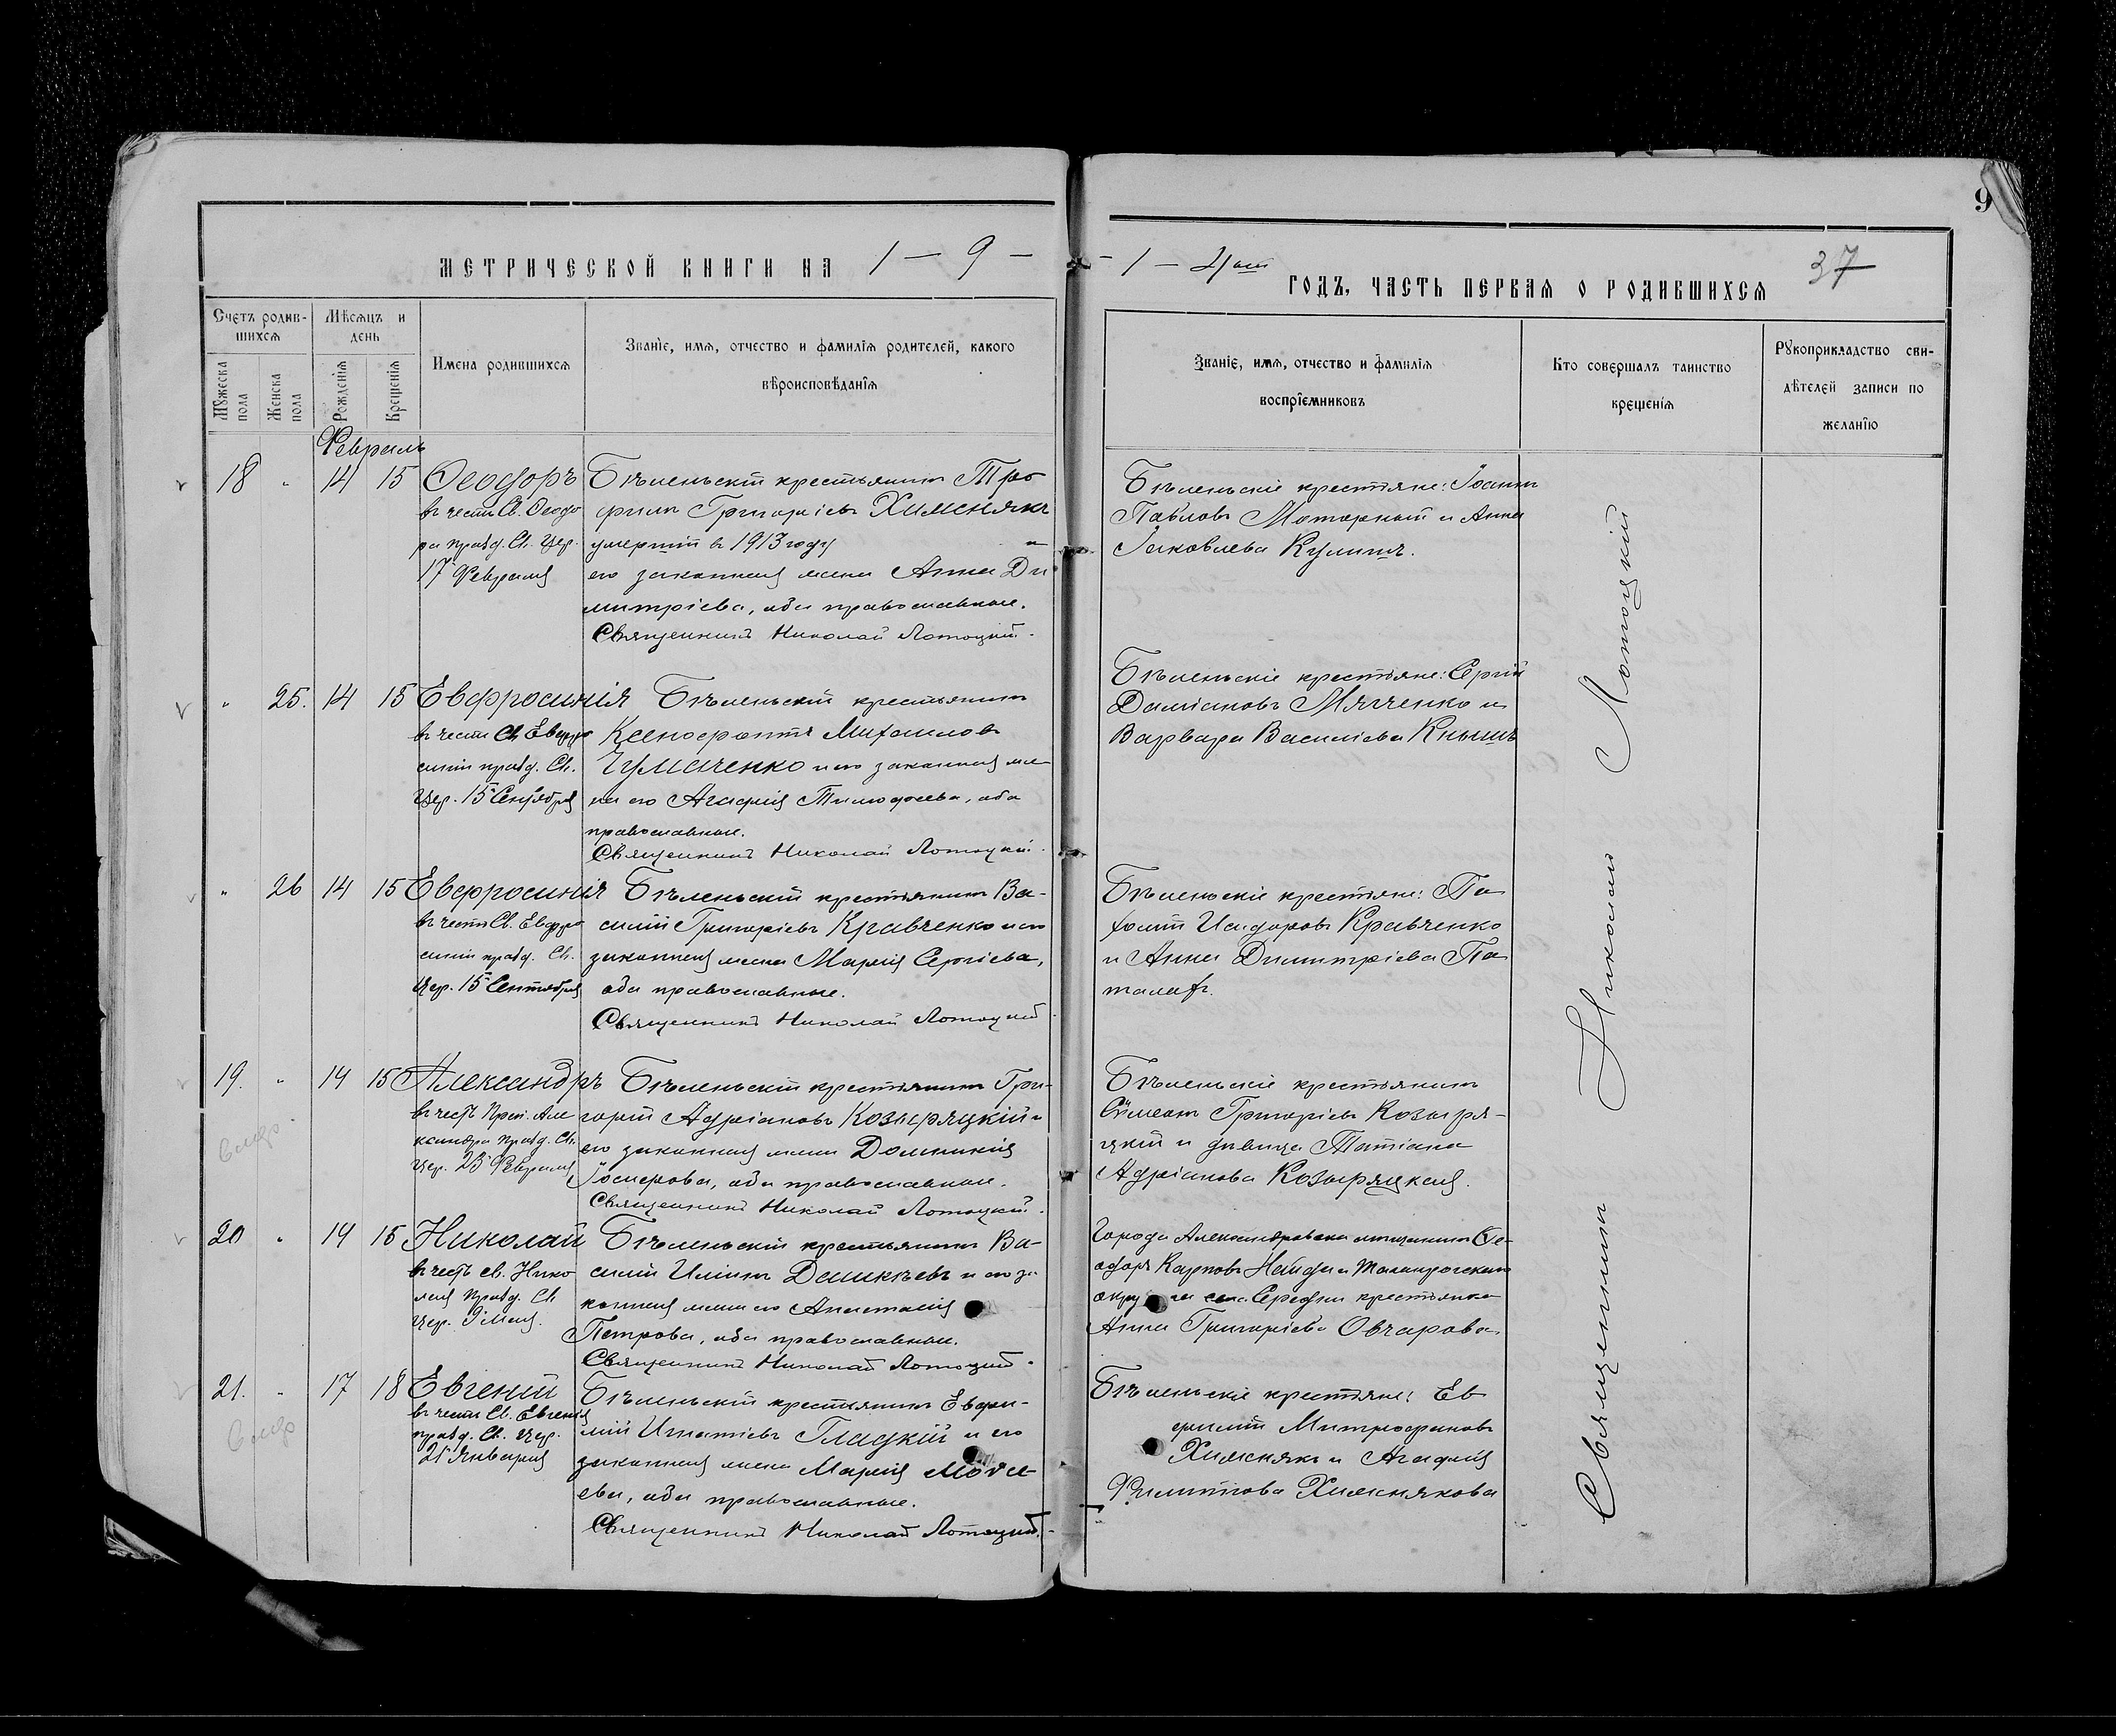 9
МЕТРИЧЕСКОЙ КНИГИ НА 1 — 9 —
— 1 — 4ый ГОДЪ, ЧАСТЬ ПЕРВАЯ О РОДИВШИХСЯ
37
Счетъ родив-
шихся
Мѣсяцъ и
день
Мужеска пола
Женска пола
Рожденія
Крещенія
Имена родившихся
Званіе, имя, отчество и фамилія родителей, какого
вѣроисповѣданія
Званіе, имя, отчество и фамилія
воспріемниковъ
Кто совершалъ таинство
крещенія
Рукоприкладство сви-
дѣтелей записи по
желанію
Февраль
18 " 14 15 Ѳеодоръ
въ честь Св. Ѳеодо
ра празд. Св. Цер.
17 Февраля
Бѣленьскій крестьянинъ Тро
фимъ Григоріевъ Хижнякъ
умершій въ 1913 году и
его законная жена Анна Ди
митріева, оба православные.
Священникъ Николай Лотоцкій.
Бѣленьскіе крестьяне: Іоаннъ
Павловъ Моторный и Анна
Іаковлева Кулишъ.
" 25. 14 15 Евфросинія
въ честь Св. Евфро
синіи празд. Св.
Цер. 15 Сентября
Бѣленьскій крестьянинъ
Ксенофонтъ Михаиловъ
Чумаченко и его законная же
на его Агафія Тимофеева, оба
православные.
Священникъ Николай Лотоцкій.
Бѣленьскіе крестьяне: Сергій
Даміановъ Мягченко и
Варвара Василіева Кнышъ
" 26 14 15 Евфросинія
въ честь Св. Евфро
синіи празд. Св.
Цер. 15 Сентября
Бѣленьскій крестьянинъ Ва-
силій Григоріевъ Кравченко и его
законная жена Марія Сергіева,
оба православные.
Священникъ Николай Лотоцкій
Бѣленьскіе крестьяне: Па
хомій Исидоровъ Кравченко
и Анна Димитріева Па
талах.
19. " 14 15 Александръ
въ честь Преп. Але
ксандра празд. Св.
Цер. 23 Февраля
Бѣленьскій крестьянинъ Гри-
горій Адріановъ Козыряцкій и
его законная жена Домникія
Іосифова, оба православные.
Священникъ Николай Лотоцкій.
Бѣленьскіе крестьянинъ
Сѵмеонъ Григоріевъ Козыря-
цкій и дѣвица Татіана
Адріанова Козыряцкая.
20 " 14 15 Николай
въ честь св. Нико
лая празд. Св
Цер. 9 Мая.
Бѣленьскій крестьянинъ Ва-
силій Иліинъ Дешкѣевъ и его за
конная жена его Анастасія
Петрова, оба православные.
Священникъ Николай Лотоцкій.
Города Александровска мѣщанинъ Ѳе-
одоръ Карповъ Найда и Таганрогскаго
округа села Середы крестьянка
Анна Григоріева Овчарова.
21. " 17 18 Евгеній
въ честь Св. Евгенія
празд. Св. Цер.
21 Января
Бѣленьскій крестьянинъ Евфи-
мій Игнатіевъ Гладкій и его
законная жена Марія Моѵсе-
ева, оба православные.
Священникъ Николай Лотоцкій.
Бѣленьскіе крестьяне: Ев
фимій Митрофановъ
Хижнякъ и Агафія
Филиппова Хижнякова
Священникъ Николай Лотоцкій